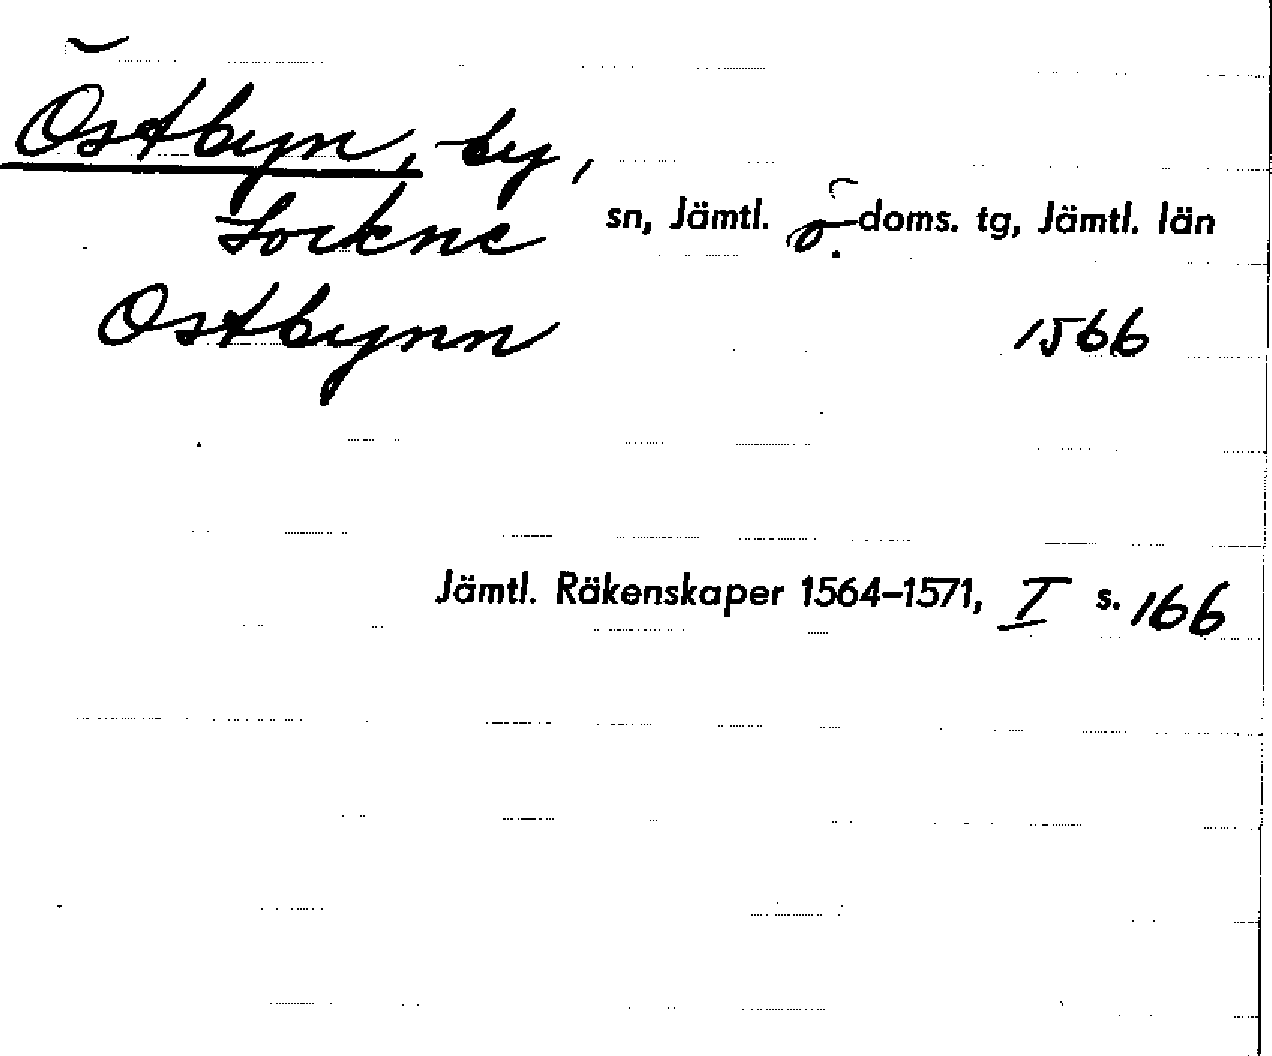 Östbyn, by,
Lockne sn, Jämtl. ö. doms. tg, Jämtl. län
Ostbynn 1566
Jämtl. Räkenskaper 1564–1571, I s. 166